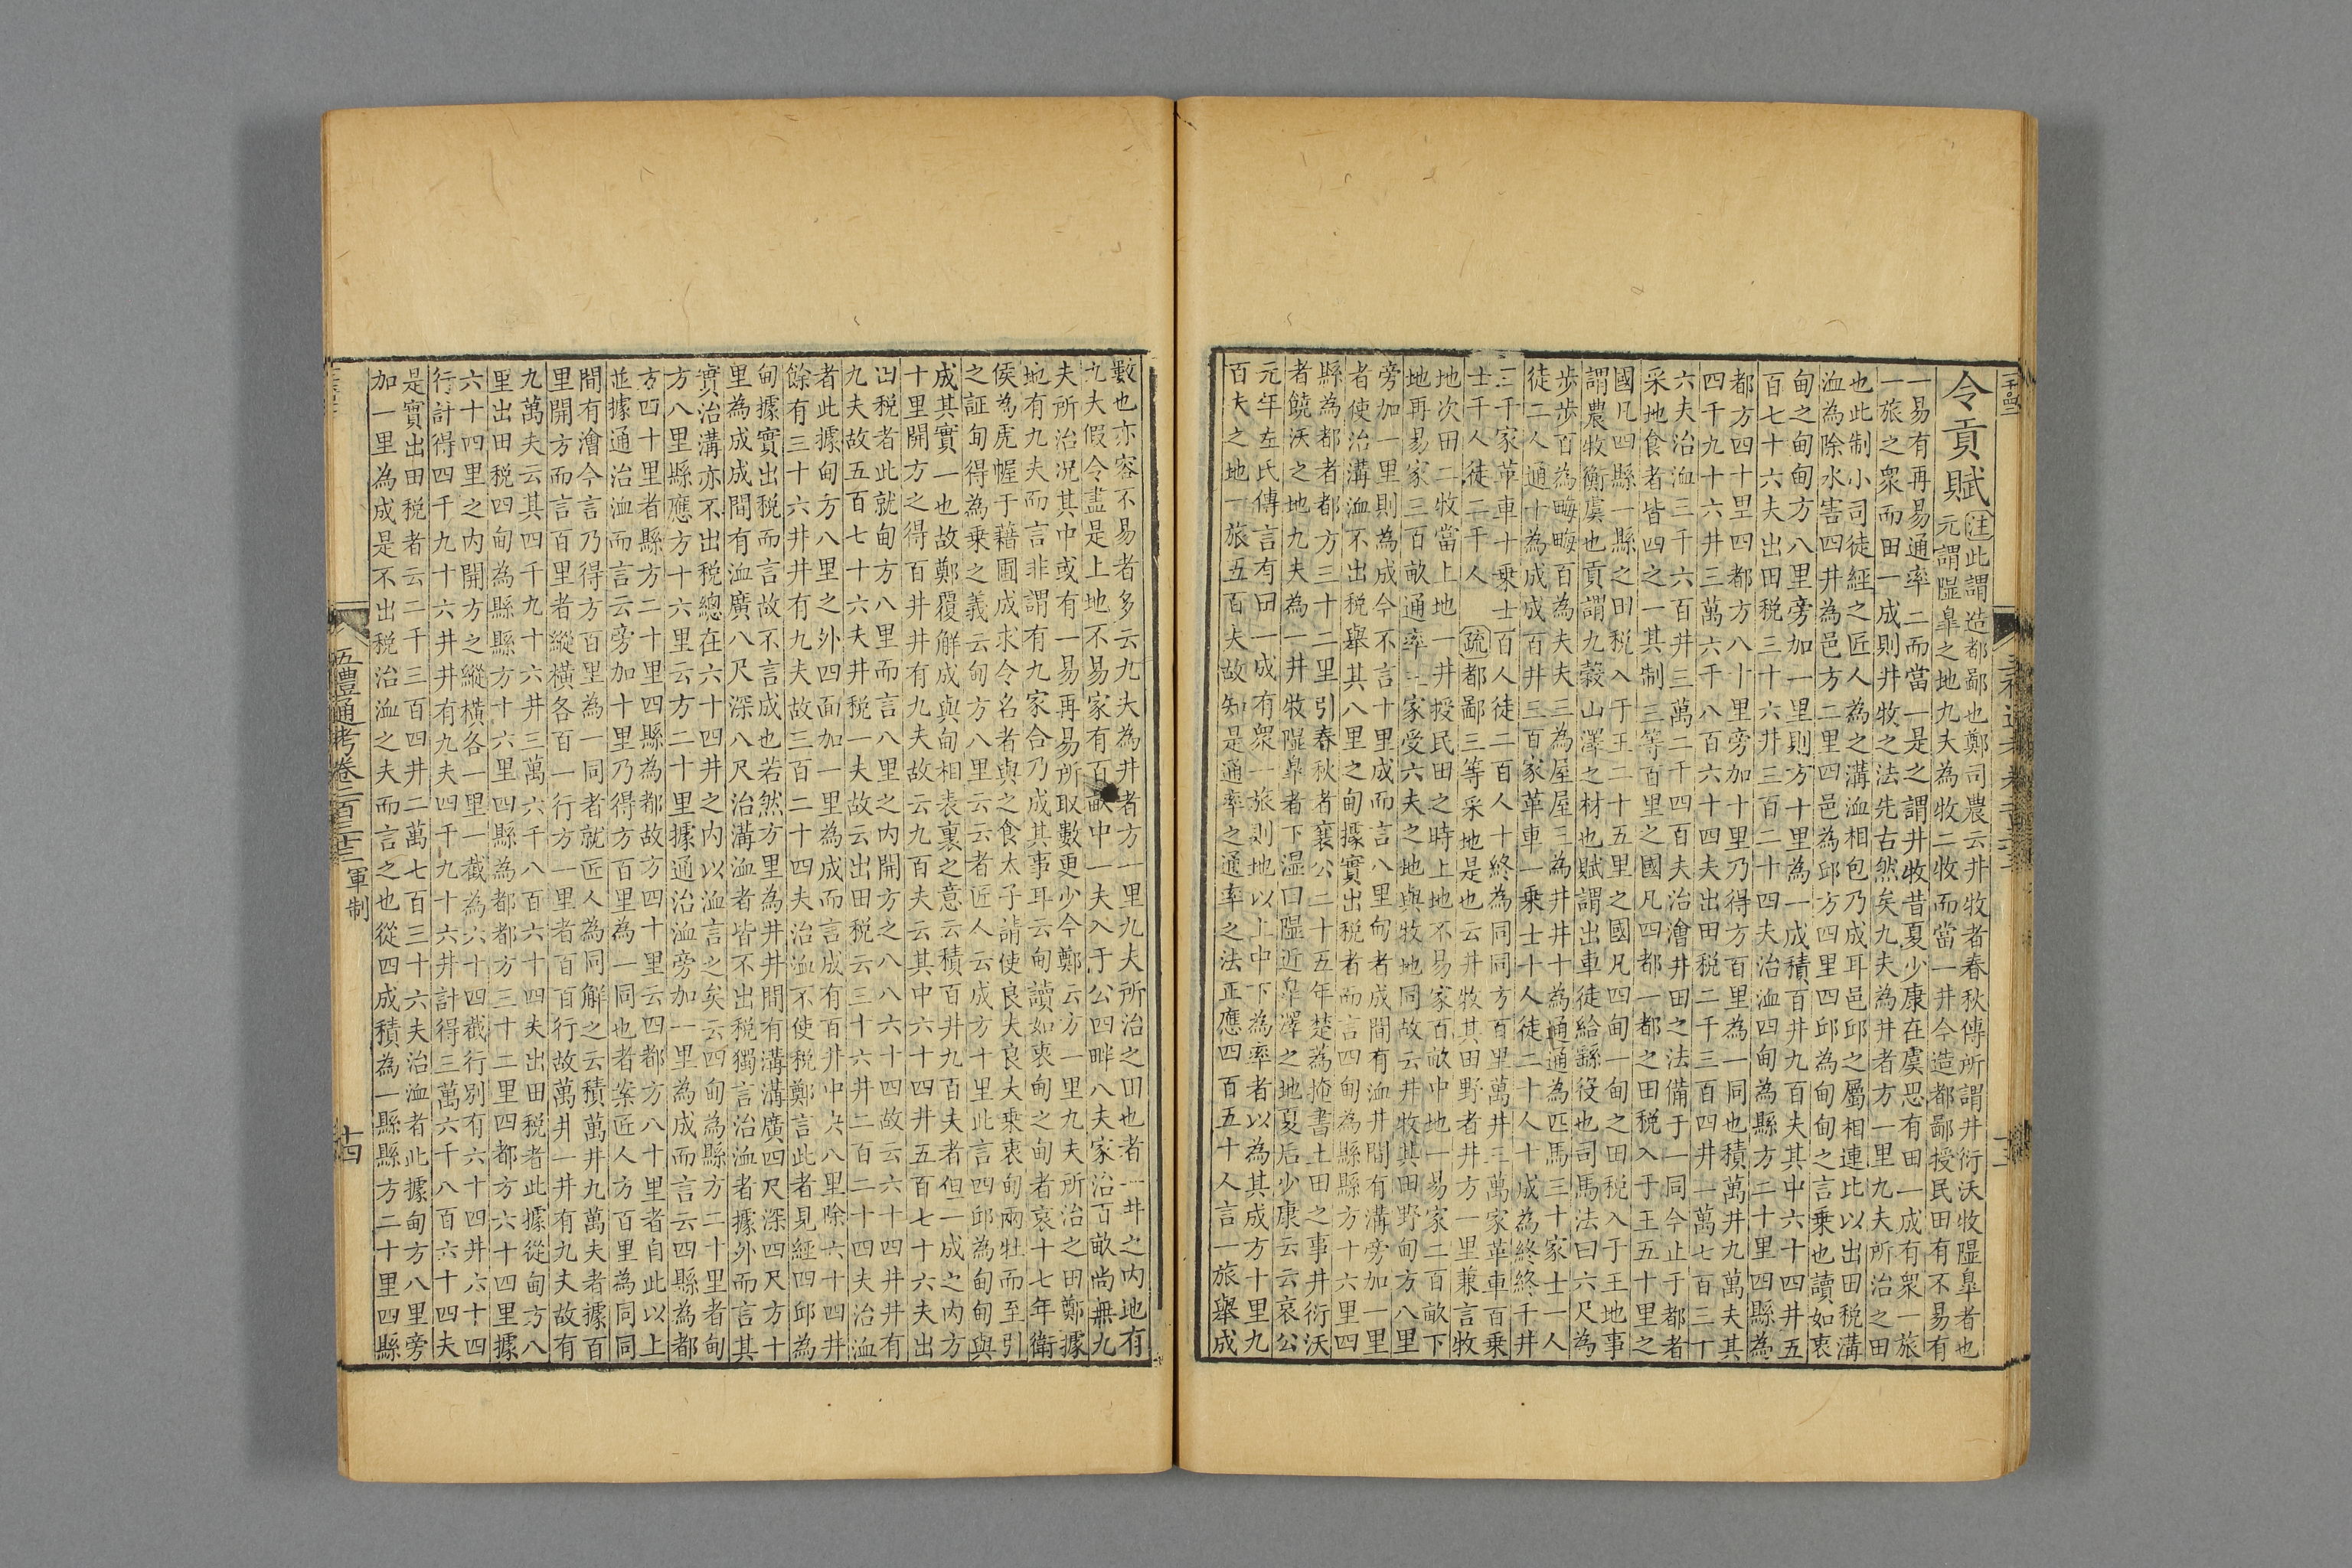 令貢賦
注此謂造都鄙也鄭司農云井牧者春秋傳所謂井衍沃牧隰臯者也
元謂隰臯之地九夫為牧二牧而當一井今造都鄙授民田有不易有
一易有再易通率二而當一是之謂井牧昔夏少康在虞思有田一成有衆一旅
一旅之衆而田一成則井牧之法先古然矣九夫為井者方一里九夫所治之田
也此制小司徒經之匠人為之溝洫相包乃成耳邑邱之屬相連比以出田税溝
洫為除水害四井為邑方二里四邑為邱方四里四邱為甸甸之言乗也讀如衷
甸之甸甸方八里旁加一里則方十里為一成積百井九百夫其中六十四井五
百七十六夫出田税三十六井三百二十四夫治洫四甸為縣方二十里四縣為
都方四十里四都方八十里旁加十里乃得方百里為一同也積萬井九萬夫其
四千九十六井三萬六千八百六十四夫出田税二千三百四井二萬七百三十
六夫治洫三千六百井三萬二千四百夫治澮井田之法備于一同今止于都者
采地食者皆四之一其制三等百里之國凡四都一都之田税入于王五十里之
國凡四縣一縣之田税入于王二十五里之國凡四甸一甸之田税入于王地事
謂農牧衡虞也貢謂九穀山澤之材也賦謂出車徒給繇役也司馬法曰六尺為
步步百為畮畮百為夫夫三為屋屋三為井井十為通通為匹馬三十家士一人
徒二人通十為成成百井三百家革車一乗士十人徒二十人十成為終終千井
三千家革車十乗士百人徒二百人十終為同同方百里萬井三萬家革車百乗
士千人徒二千人 疏都鄙三等采地是也云井牧其田野者井方一里兼言牧
地次田二牧當上地一井授民田之時上地不易家百畝中地一易家二百畝下
地再易家三百畝通率三家受六夫之地與牧地同故云井牧其田野甸方八里
旁加一里則為成今不言十里成而言八里甸者成間有洫井間有溝旁加一里
者使治溝洫不出税舉其八里之甸據實出税者而言四甸為縣縣方十六里四
縣為都者都方三十二里引春秋者襄公二十五年楚蒍掩書土田之事井衍沃
者饒沃之地九夫為一井牧隰臯者下湿曰隰近臯澤之地夏后少康云云哀公
元年左氏傳言有田一成有衆一旅則地以上中下為率者以為其成方十里九
百夫之地一旅五百夫故知是通率之通率之法正應四百五十人言一旅舉成
數也亦容不易者多云九夫為井者方一里九夫所治之田也者一井之内地有
九夫假令盡是上地不易家有百畝中一夫入于公四畔八夫家治百畝尚無九
夫所治况其中或有一易再易所取數更少今鄭云方一里九夫所治之田鄭據
地有九夫而言非謂有九家合乃成其事耳云甸讀如衷甸之甸者哀十七年衛
侯為虎幄于藉圃成求令名者與之食太子請使良夫良夫乗衷甸兩牡而至引
之証甸得為乗之義云甸方八里云云者匠人云成方十里此言四邱為甸甸與
成其實一也故鄭覆解成與甸相表裏之意云積百井九百夫者但一成之内方
十里開方之得百井井有九夫故云九百夫云其中六十四井五百七十六夫出
田税者此就甸方八里而言八里之内開方之八八六十四故云六十四井井有
九夫故五百七十六夫井税一夫故云出田税云三十六井三百二十四夫治洫
者此據甸方八里之外四面加一里為成而言成有百井中央八里除六十四井
餘有三十六井井有九夫故三百二十四夫治洫不使税鄭言此者見經四邱為
甸據實出税而言故不言成也若然方里為井井間有溝溝廣四尺深四尺方十
里為成成間有洫廣八尺深八尺治溝洫者皆不出税獨言治洫者據外而言其
實治溝亦不出税總在六十四井之内以洫言之矣云四甸為縣方二十里者甸
方八里縣應方十六里云方二十里據通治洫旁加一里為成而言云四縣為都
方四十里者縣方二十里四縣為都故方四十里云四都方八十里者自此以上
並據通治洫而言云旁加十里乃得方百里為一同也者案匠人方百里為同同
間有澮今言乃得方百里為一同者就匠人為同解之云積萬井九萬夫者據百
里開方而言百里者縱横各百一行方一里者百百行故萬井一井有九夫故有
九萬夫云其四千九十六井三萬六千八百六十四夫出田税者此據從甸方八
里出田税四甸為縣縣方十六里四縣為都都方三十二里四都方六十四里據
六十四里之内開方之縱横各一里一截為六十四截行别有六十四井六十四
行計得四千九十六井井有九夫四千九十六井計得三萬六千八百六十四夫
是實出田税者云二千三百四井二萬七百三十六夫治洫者此據甸方八里旁
加一里為成是不出税治洫之夫而言之也從四成積為一縣縣方二十里四縣
五禮通考卷二百三十三 軍制 十四